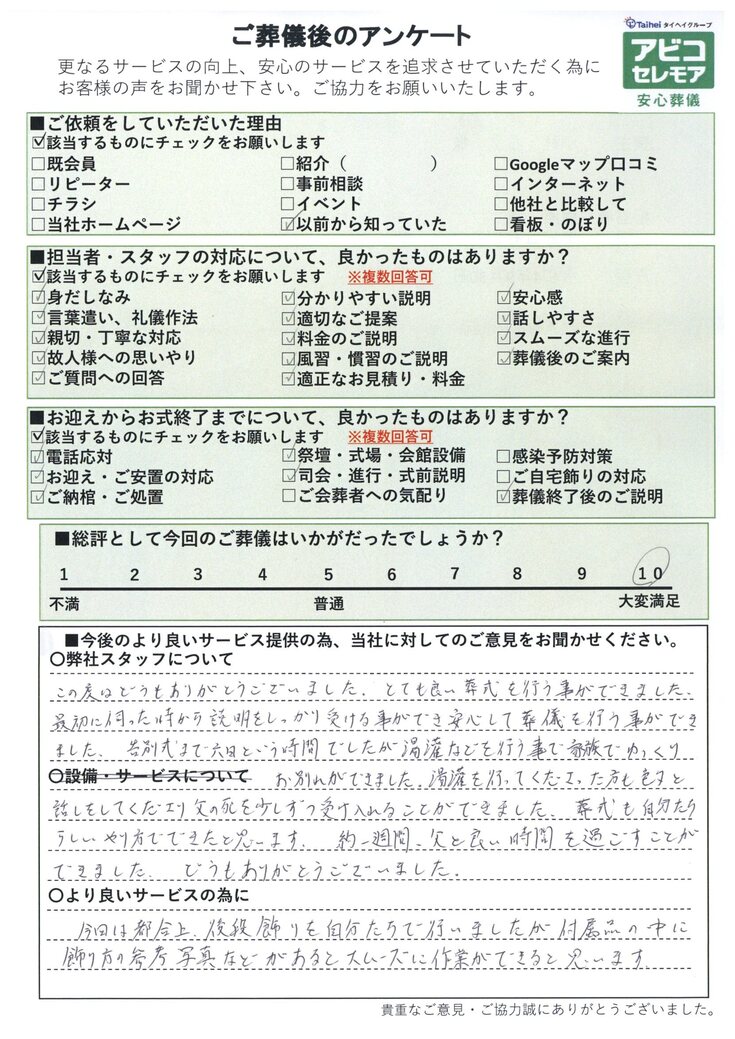 ご葬儀後のアンケート
Taihei タイヘイグループ
アビコ
セレモア
安心葬儀
更なるサービスの向上、安心のサービスを追求させていただく為に
お客様の声をお聞かせ下さい。ご協力をお願いいたします。
■ご依頼をしていただいた理由
☑該当するものにチェックをお願いします
□既会員 □紹介（ ） □Googleマップ口コミ
□リピーター □事前相談 □インターネット
□チラシ □イベント □他社と比較して
□当社ホームページ ☑以前から知っていた □看板・のぼり
■担当者・スタッフの対応について、良かったものはありますか？
☑該当するものにチェックをお願いします ※複数回答可
☑身だしなみ ☑分かりやすい説明 ☑安心感
☑言葉遣い、礼儀作法 ☑適切なご提案 ☑話しやすさ
☑親切・丁寧な対応 ☑料金のご説明 ☑スムーズな進行
☑故人様への思いやり ☑風習・慣習のご説明 ☑葬儀後のご案内
☑ご質問への回答 ☑適正なお見積り・料金
■お迎えからお式終了までについて、良かったものはありますか？
☑該当するものにチェックをお願いします ※複数回答可
☑電話応対 ☑祭壇・式場・会館設備 □感染予防対策
☑お迎え・ご安置の対応 ☑司会・進行・式前説明 □ご自宅飾りの対応
☑ご納棺・ご処置 □ご会葬者への気配り ☑葬儀終了後のご説明
■総評として今回のご葬儀はいかがだったでしょうか？
1 2 3 4 5 6 7 8 9 10
不満 普通 大変満足
■今後のより良いサービス提供の為、当社に対してのご意見をお聞かせください。
○弊社スタッフについて
この度はどうもありがとうございました。とても良い葬式を行う事ができました。
最初に伺った時から説明をしっかり受ける事ができ安心して葬儀を行う事ができ
ました。告別式まで六日という時間でしたが湯灌などを行う事で家族でゆっくり
○設備・サービスについて お別れができました。湯灌を行ってくださった方も色々と
話しをしてくださり父の死を少しずつ受け入れることができました。葬式も自分たち
らしいやり方でできたと思います。約一週間、父と良い時間を過ごすことが
できました。どうもありがとうございました。
○より良いサービスの為に
今回は都合上、後段飾りを自分たちで行いましたが付属品の中に
飾り方の参考写真などがあるとスムーズに作業ができると思います
貴重なご意見・ご協力誠にありがとうございました。